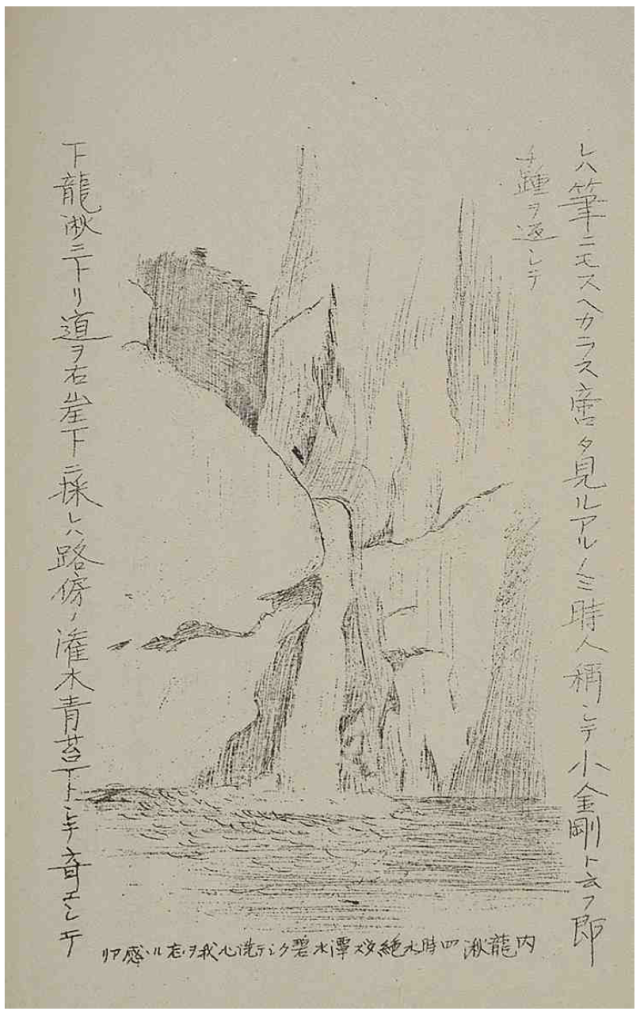 レハ筆ニモスヘカラス啻タ見ルアルノミ時人稱シテ小金剛ト云フ即
チ踵ヲ返シテ
下龍湫ニ下リ道ヲ右崖下ニ採レハ路傍ノ潅木青苔
内龍湫 四時水絶ヘス潭水碧クシテ洗心我ヲ忘ルヽ感アリ